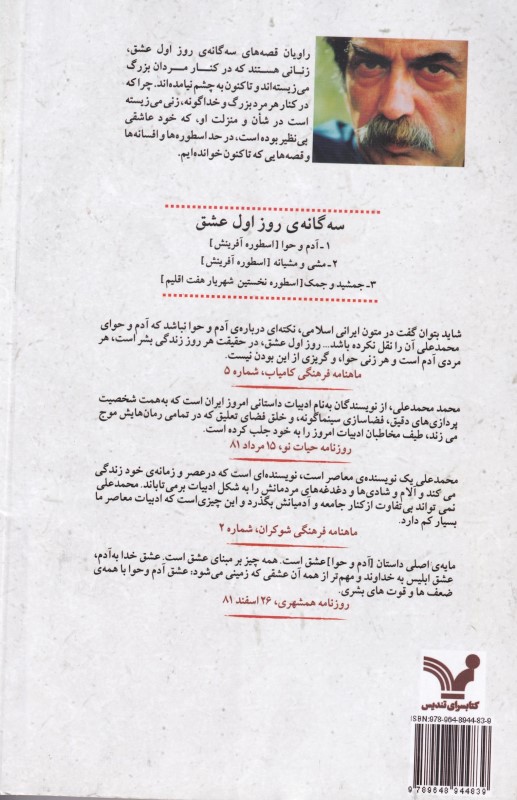 راویان قصه‌های سه‌گانه‌ی روز اول عشق،
زنانی هستند که در کنار مردان بزرگ
می‌زیسته‌اند و تاکنون به چشم نیامده‌اند. چرا که
در کنار هر مرد بزرگ و خداگونه، زنی می‌زیسته
است در شأن و منزلت او، که خود عاشقی
بی‌نظیر بوده است، در حد اسطوره‌ها و افسانه‌ها
و قصه‌هایی که تاکنون خوانده‌ایم.
سه گانه‌ی روز اول عشق
۱- آدم و حوا [اسطوره آفرینش]
۲- مشی و مشیانه [اسطوره آفرینش]
۳- جمشید و جمک [اسطوره نخستین شهریار هفت اقلیم]
شاید بتوان گفت در متون ایرانی اسلامی، نکته‌ای درباره‌ی آدم و حوا نباشد که آدم و حوای
محمدعلی آن را نقل نکرده باشد... روز اول عشق، در حقیقت هر روز زندگی بشر است، هر
مردی آدم است و هر زنی حوا، و گریزی از این بودن نیست.
ماهنامه فرهنگی کامیاب، شماره ۵
محمد محمدعلی، از نویسندگان به‌نام ادبیات داستانی امروز ایران است که به‌همت شخصیت
پردازی‌های دقیق، فضاسازی سینماگونه، و خلق فضای تعلیق که در تمامی رمان‌هایش موج
می زند، طیف مخاطبان ادبیات امروز را به خود جلب کرده است.
روزنامه حیات نو، ۱۵ مرداد ۸۱
محمدعلی یک نویسنده‌ی معاصر است، نویسنده‌ای است که درعصر و زمانه‌ی خود زندگی
می کند و آلام و شادی‌ها و دغدغه‌های مردمانش را به شکل ادبیات برمی‌تاباند. محمدعلی
نمی تواند بی‌تفاوت ازکنار جامعه و آدمیانش بگذرد و این چیزی است که ادبیات معاصر ما
بسیار کم دارد.
ماهنامه فرهنگی شوکران، شماره ۲
مایه‌ی اصلی داستان [آدم و حوا] عشق است. همه چیز بر مبنای عشق است. عشق خدا به‌آدم،
عشق ابلیس به خداوند و مهم‌تر از همه آن عشقی که زمینی می‌شود: عشق آدم وحوا با همه‌ی
ضعف ها و قوت های بشری.
روزنامه همشهری، ۲۶ اسفند ۸۱
کتابسرای تندیس
ISBN:978-964-8944-83-9
9 789648 944839